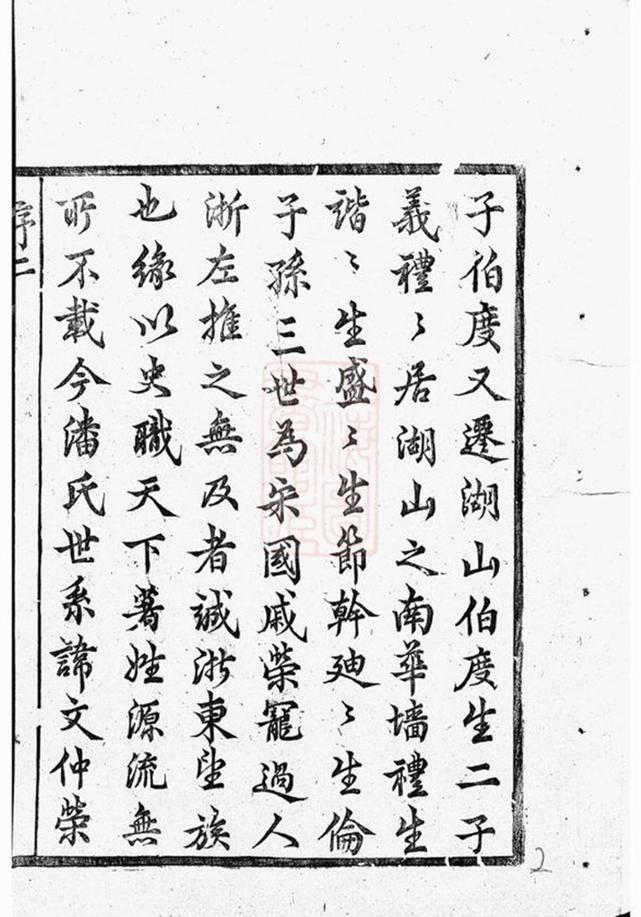 子伯度又遷湖山伯度生二子
義禮〻居湖山之南華墻禮生
諧〻生盛〻生節幹廸〻生倫
子孫三世為宋國戚榮寵過人
浙左推之無及者誠浙東望族
也緣以史職天下著姓源流無
所不載今潘氏世系諦文仲榮
序二
2